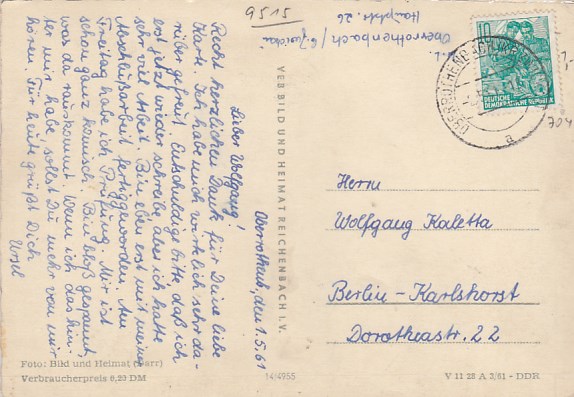 9515
Oberothenbach / b. Zwickau
Hauptstr. 26
Oberrothenb., den 1.5.61
Lieber Wolfgang!
Recht herzlichen Dank für Deine liebe
Karte. Ich habe mich wirklich sehr da-
rüber gefreut. Entschuldige bitte daß ich
erst jetzt wieder schreibe aber ich hatte
sehr viel Arbeit. Bin eben erst mit meiner
Abschlußarbeit fertiggeworden. Am
Freitag habe ich Prüfung. Mir ist
schon ganz komisch. Bin bloß gespannt,
was da rauskommt. Wenn ich das hin-
ter mir habe, sollst Du mehr von mir
hören. Für heute grüßt Dich
Ursel
VEB BILD UND HEIMAT REICHENBACH I. V.
10
DEUTSCHE
DEMOKRATISCHE REPUBLIK
a
704
Herrn
Wolfgang Kaletta
Berlin-Karlshorst
Dorotheastr. 22
Foto: Bild und Heimat (Darr)
Verbraucherpreis 0,20 DM
14/4955
V 11 28 A 2/61 - DDR